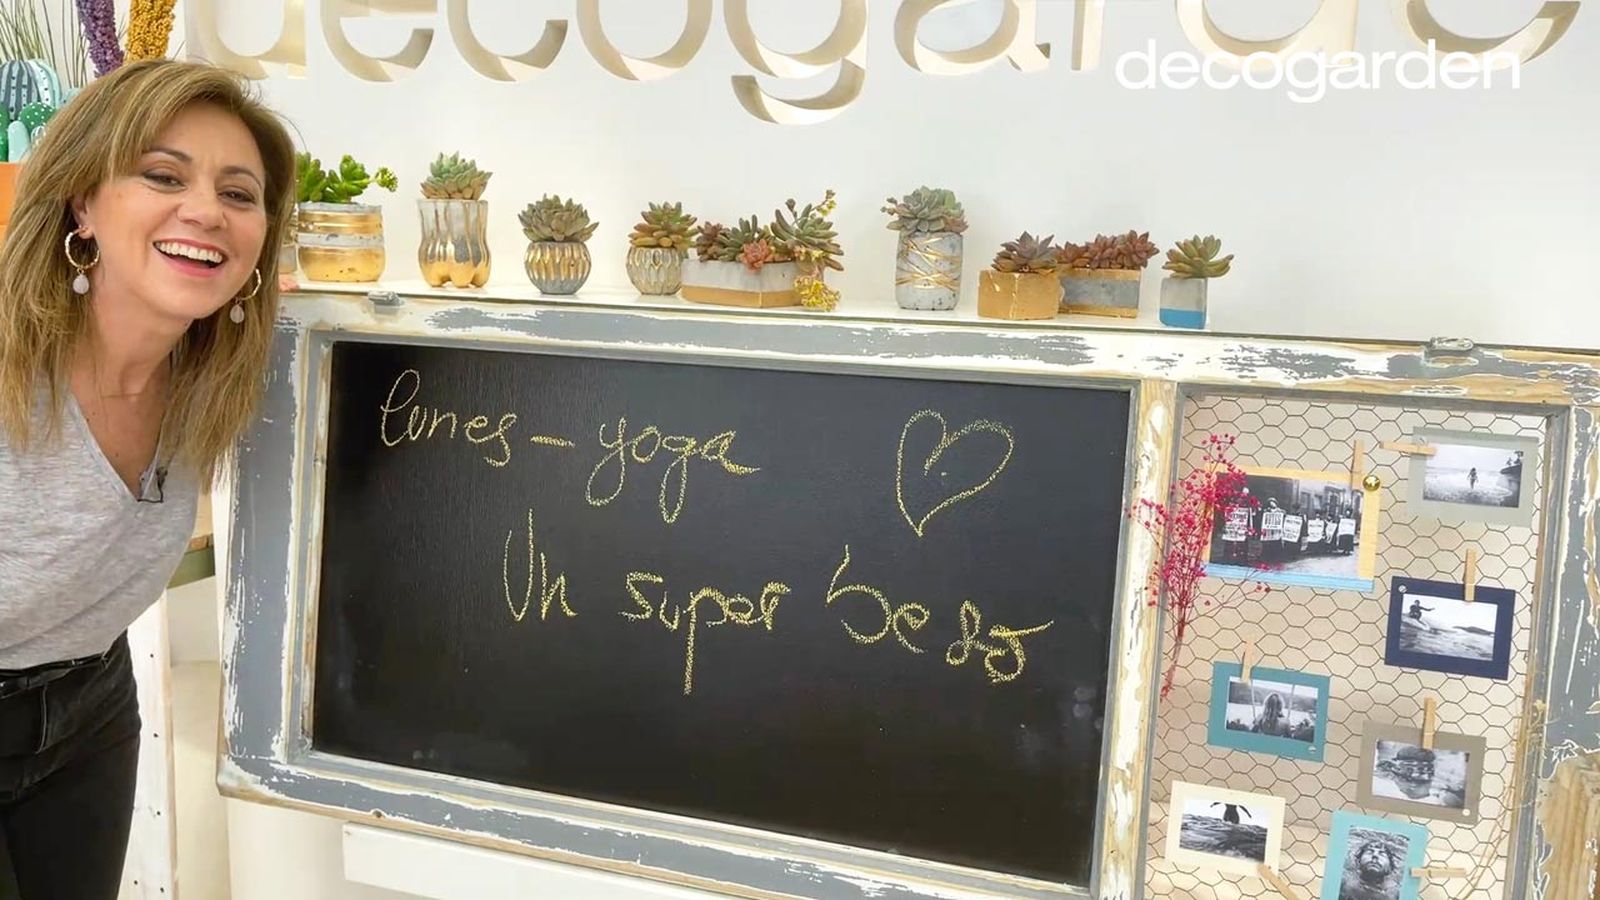 decogarde
decogarden
lunes - yoga
Un super beso